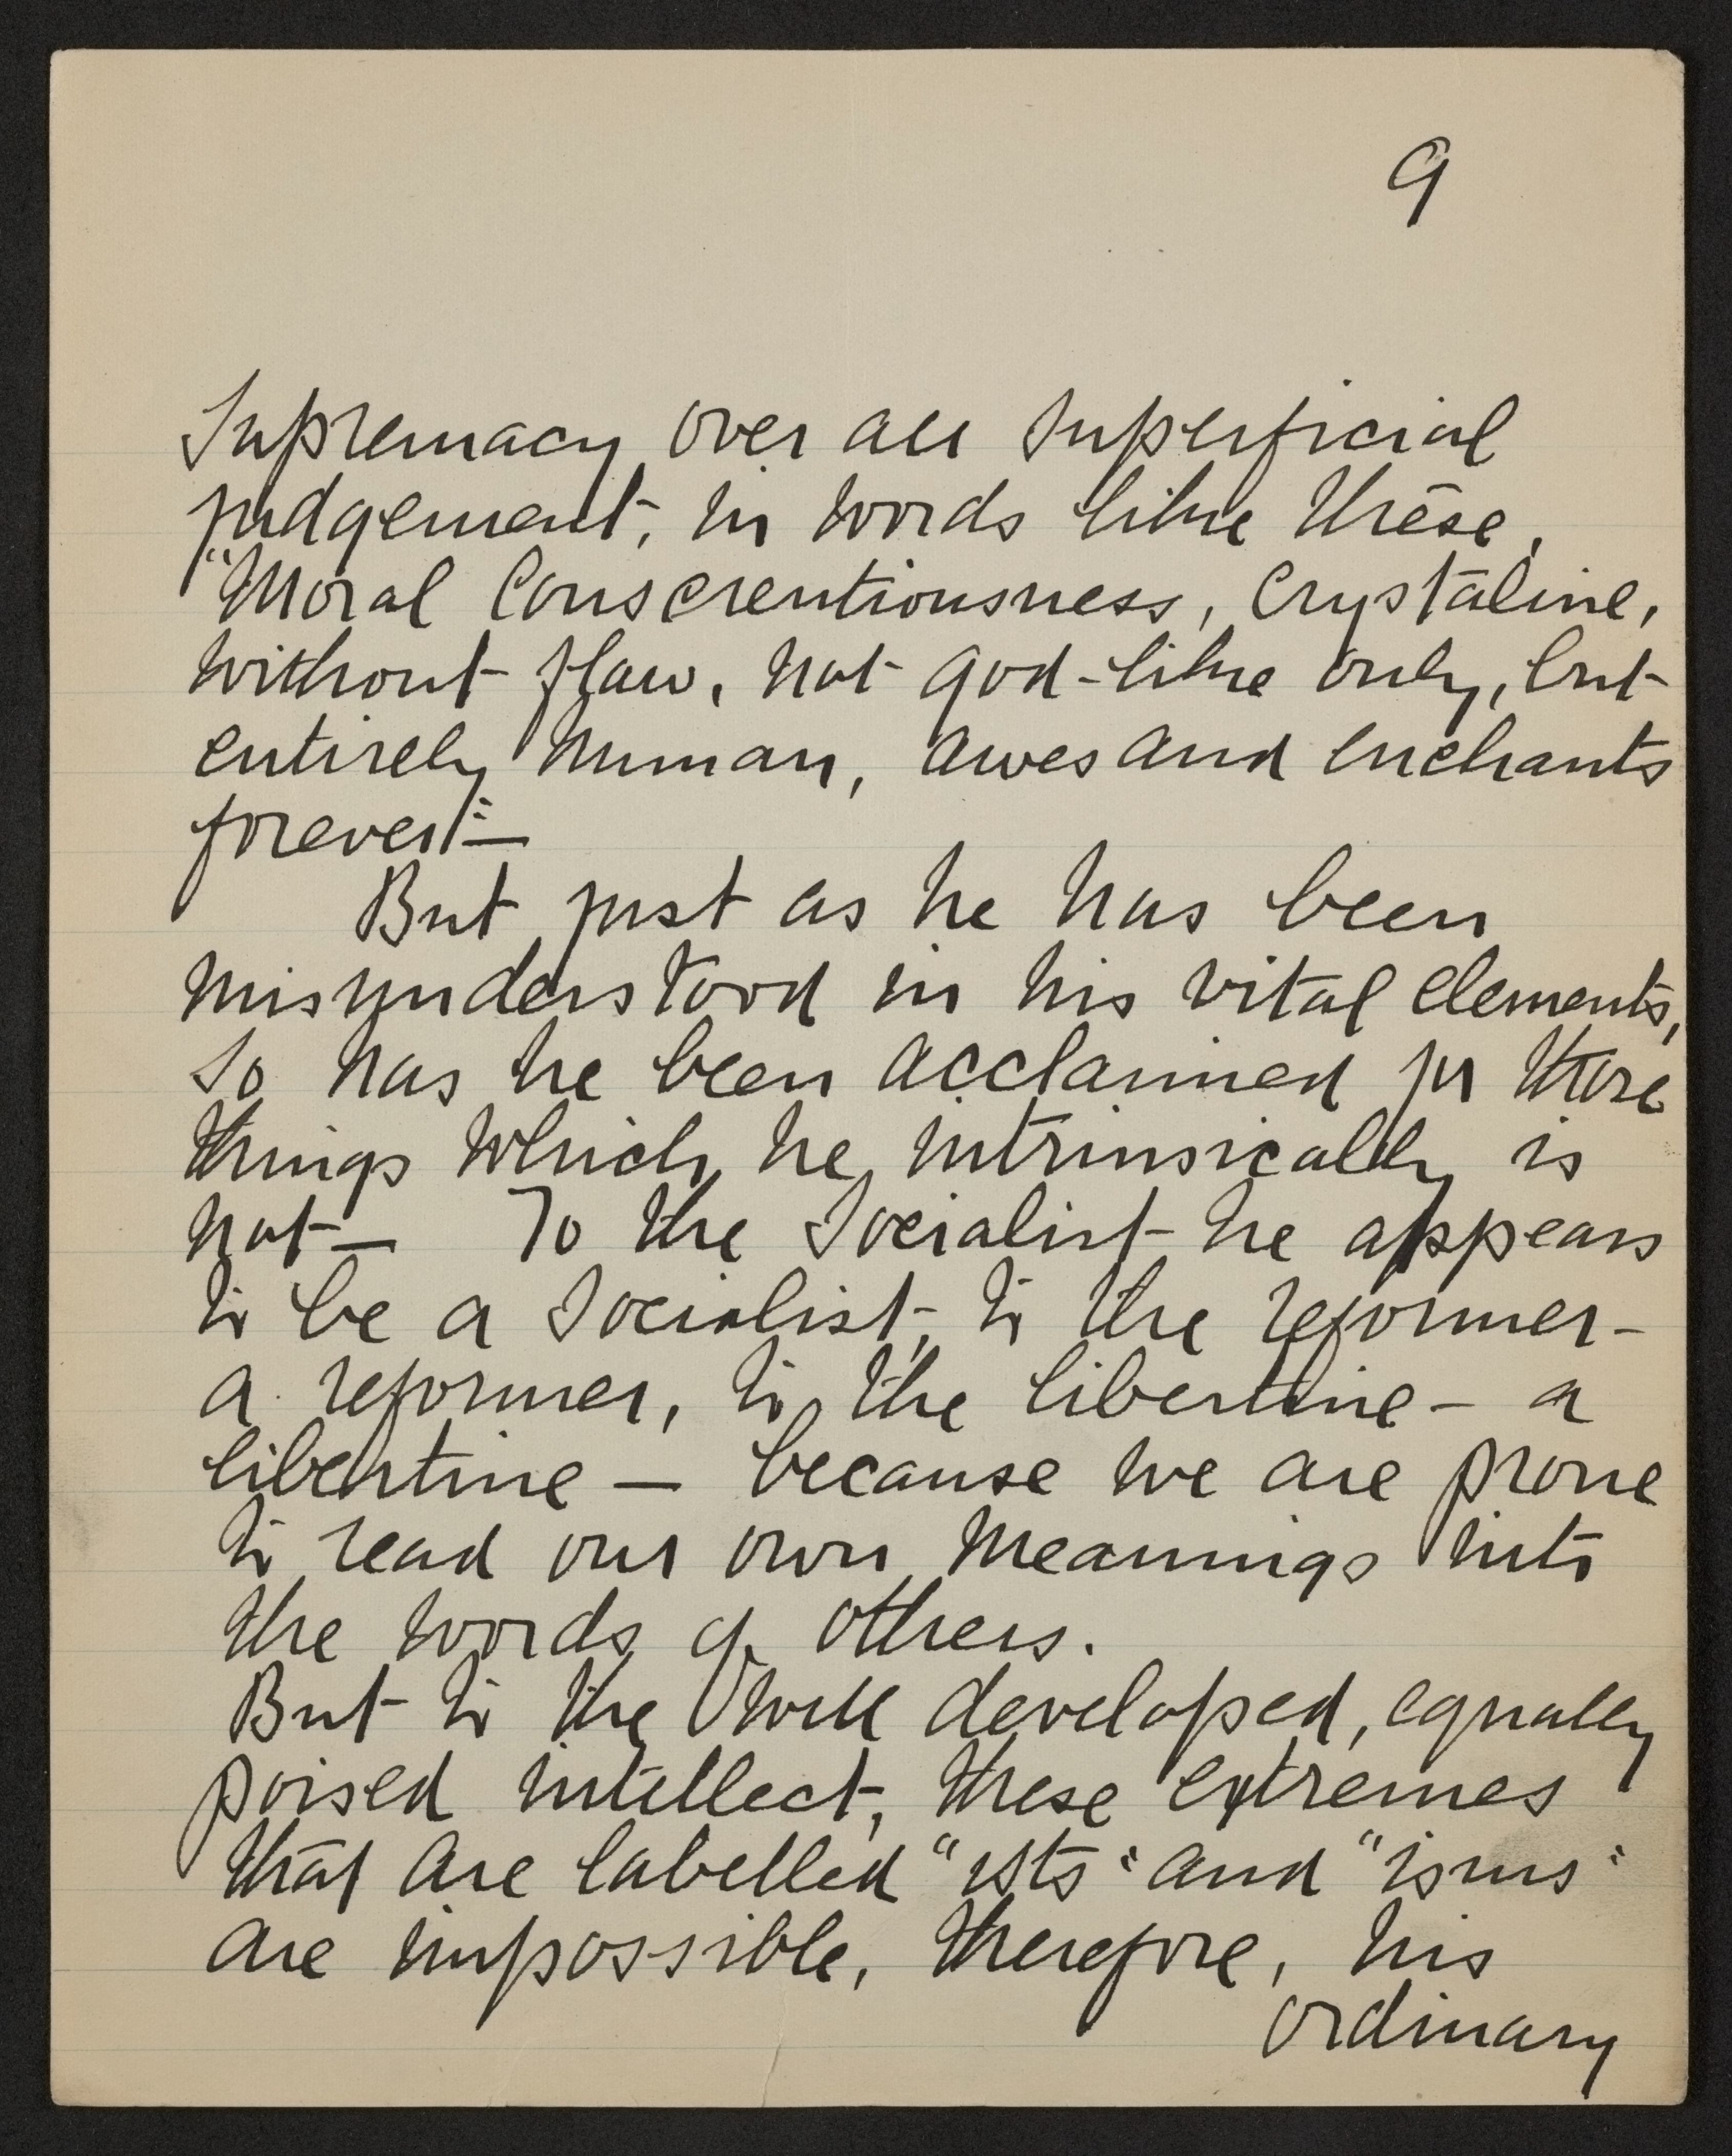 9
Supremacy over all superficial
judgement, in words like these,
"Moral Conscientiousness, Crystaline,
without flaw, not god-like only, but
entirely human, awes and enchants
forever":—
But just as he has been
misunderstood in his vital elements,
so has he been acclaimed for those
things which he intrinsically is
not— To the Socialist he appears
to be a Socialist, to the reformer-
a reformer, to the libertine - a
libertine — because we are prone
to read our own meanings into
the words of others.
But to the well developed, equally
poised intellect, these extremes
that are labelled "ists" and "isms"
are impossible, therefore, his
ordinary